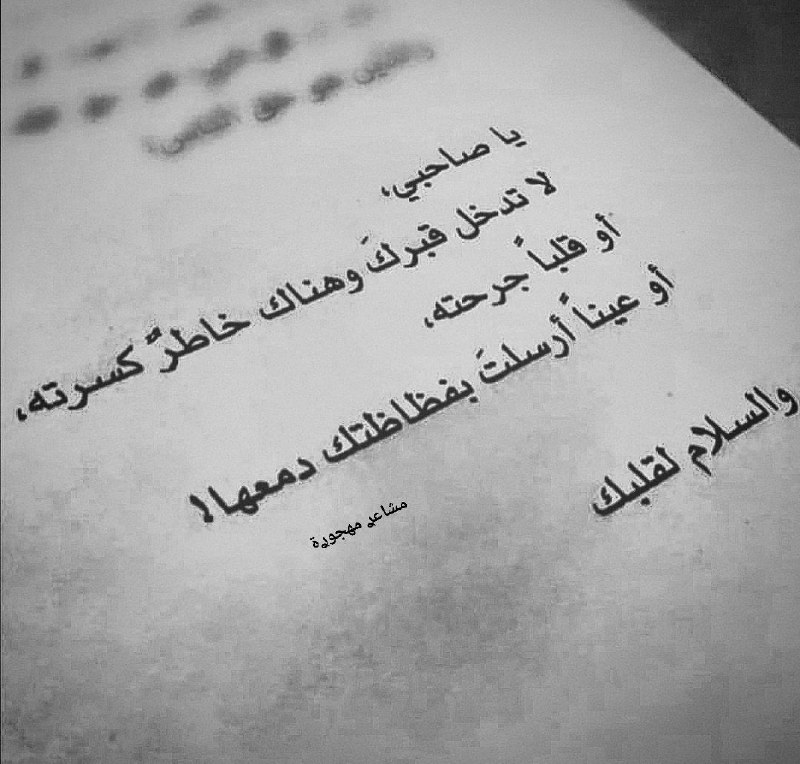 هو حق الناس،
يا صاحبي،
لا تدخل قبركَ وهناك خاطرٌ كسرته،
أو قلباً جرحته،
أو عيناً أرسلتَ بفظاظتك دمعها!
والسلام لقلبك
مشاعر مهجورة